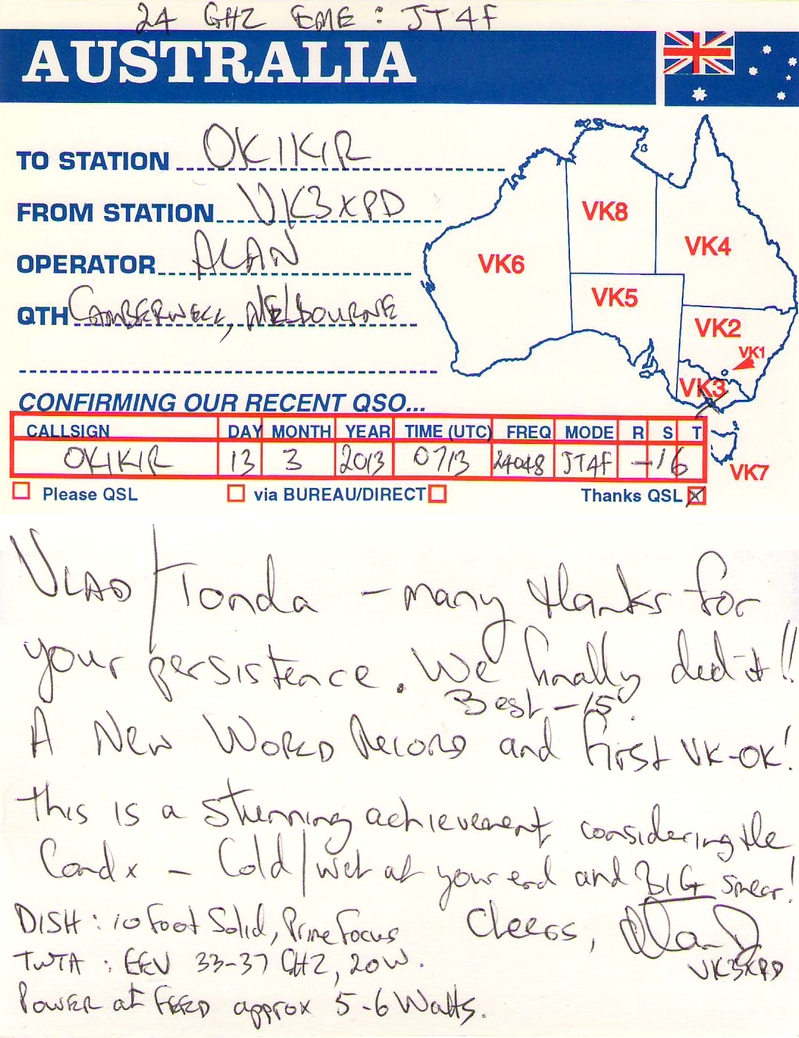 24 GHZ EME : JT4F
AUSTRALIA
TO STATION OK1KIR
FROM STATION VK3XPD
OPERATOR ALAN
QTH CAMBERWELL, MELBOURNE
VK8
VK6
VK4
VK5
VK2
VK1
VK3
VK7
CONFIRMING OUR RECENT QSO...
CALLSIGN DAY MONTH YEAR TIME (UTC) FREQ MODE R S T
OK1KIR 13 3 2013 0713 24048 JT4F -16
Please QSL via BUREAU/DIRECT Thanks QSL
VLAD/Tonda - many thanks for
your persistence. We finally did it!!
Best -15.
A New WORLD RECORD and first VK-OK!
This is a stunning achievement considering the
Condx - Cold/wet at your end and BIG smear!
DISH : 10 foot Solid, Prime Focus
Cheers, Alan
TWTA : EEV 33-37 GHZ, 20W.
VK3XPD
POWER at FEED approx 5-6 Watts.